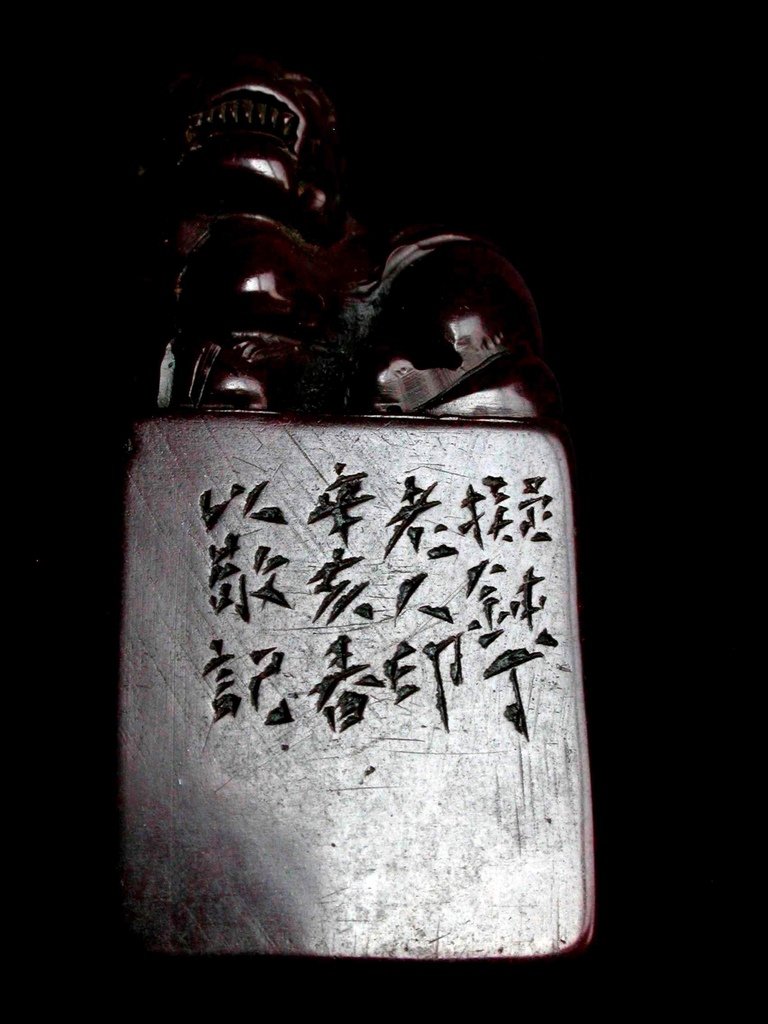 擬鈍丁
老人印
辛亥春
以敬記